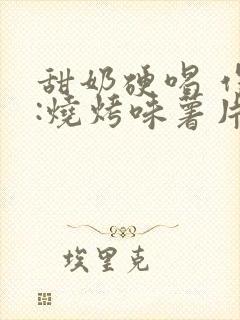 甜奶硬唱
:燒烤味薯片
埃里克